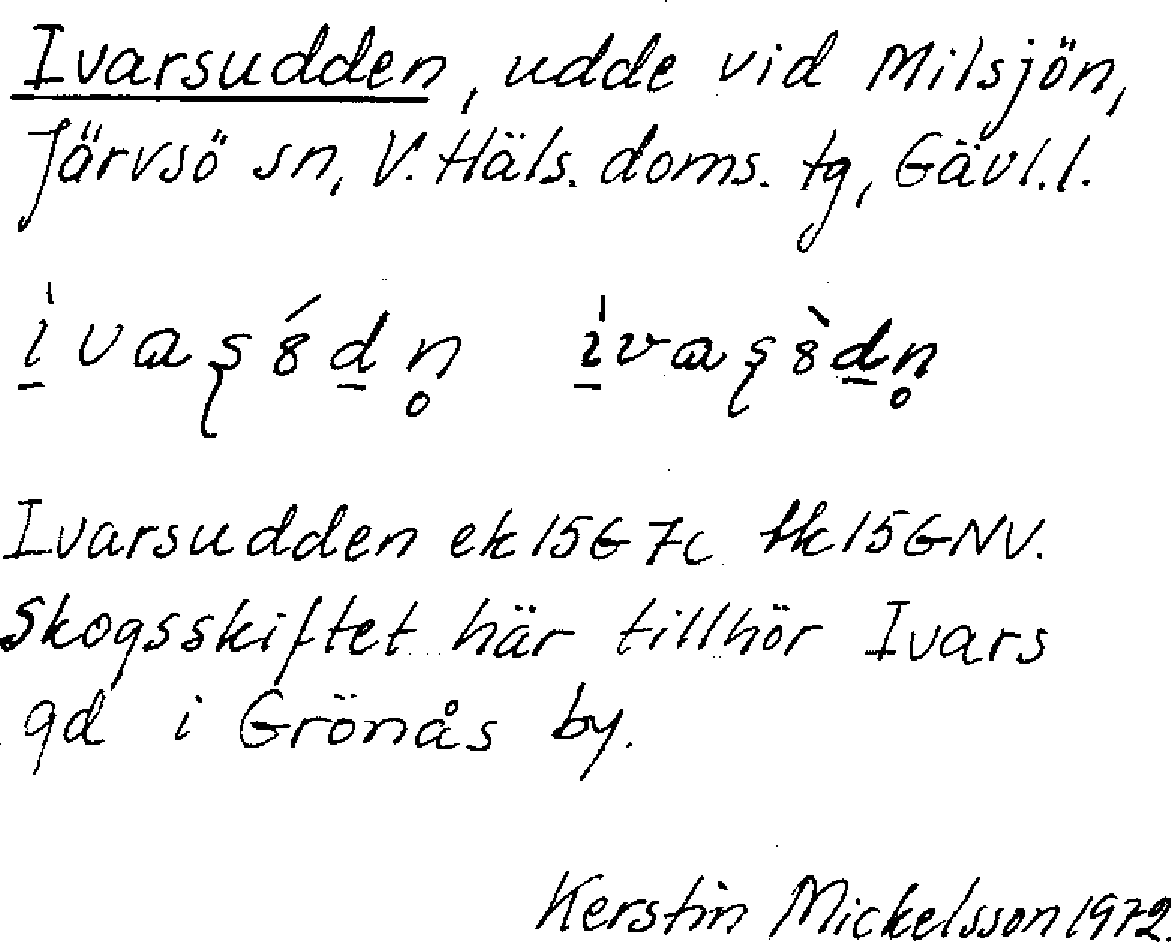 Ivarsudden, udde vid Milsjön,
Järvsö sn, V. Häls. doms. tg, Gävl.l.
Ivarsudden ek 15G 7c tk 15GNV.
Skogsskiftet här tillhör Ivars
gd i Grönås by.
Kerstin Mickelsson 1972.